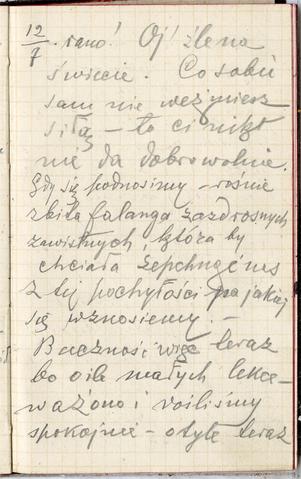 12/7. rano! Oj źle na
świecie. Co sobie
sam nie weźmiesz
siłą – to ci nikt
nie da dobrowolnie.
Gdy się podnosimy – rośnie
zbita falanga zazdrosnych
zawistnych, która by
chciała zepchnąć nas
z tej pochyłości po jakiej
się wznosiemy. –
Baczność więc teraz
bo o ile małych lekce-
ważono i rośliśmy
spokojnie – o tyle teraz